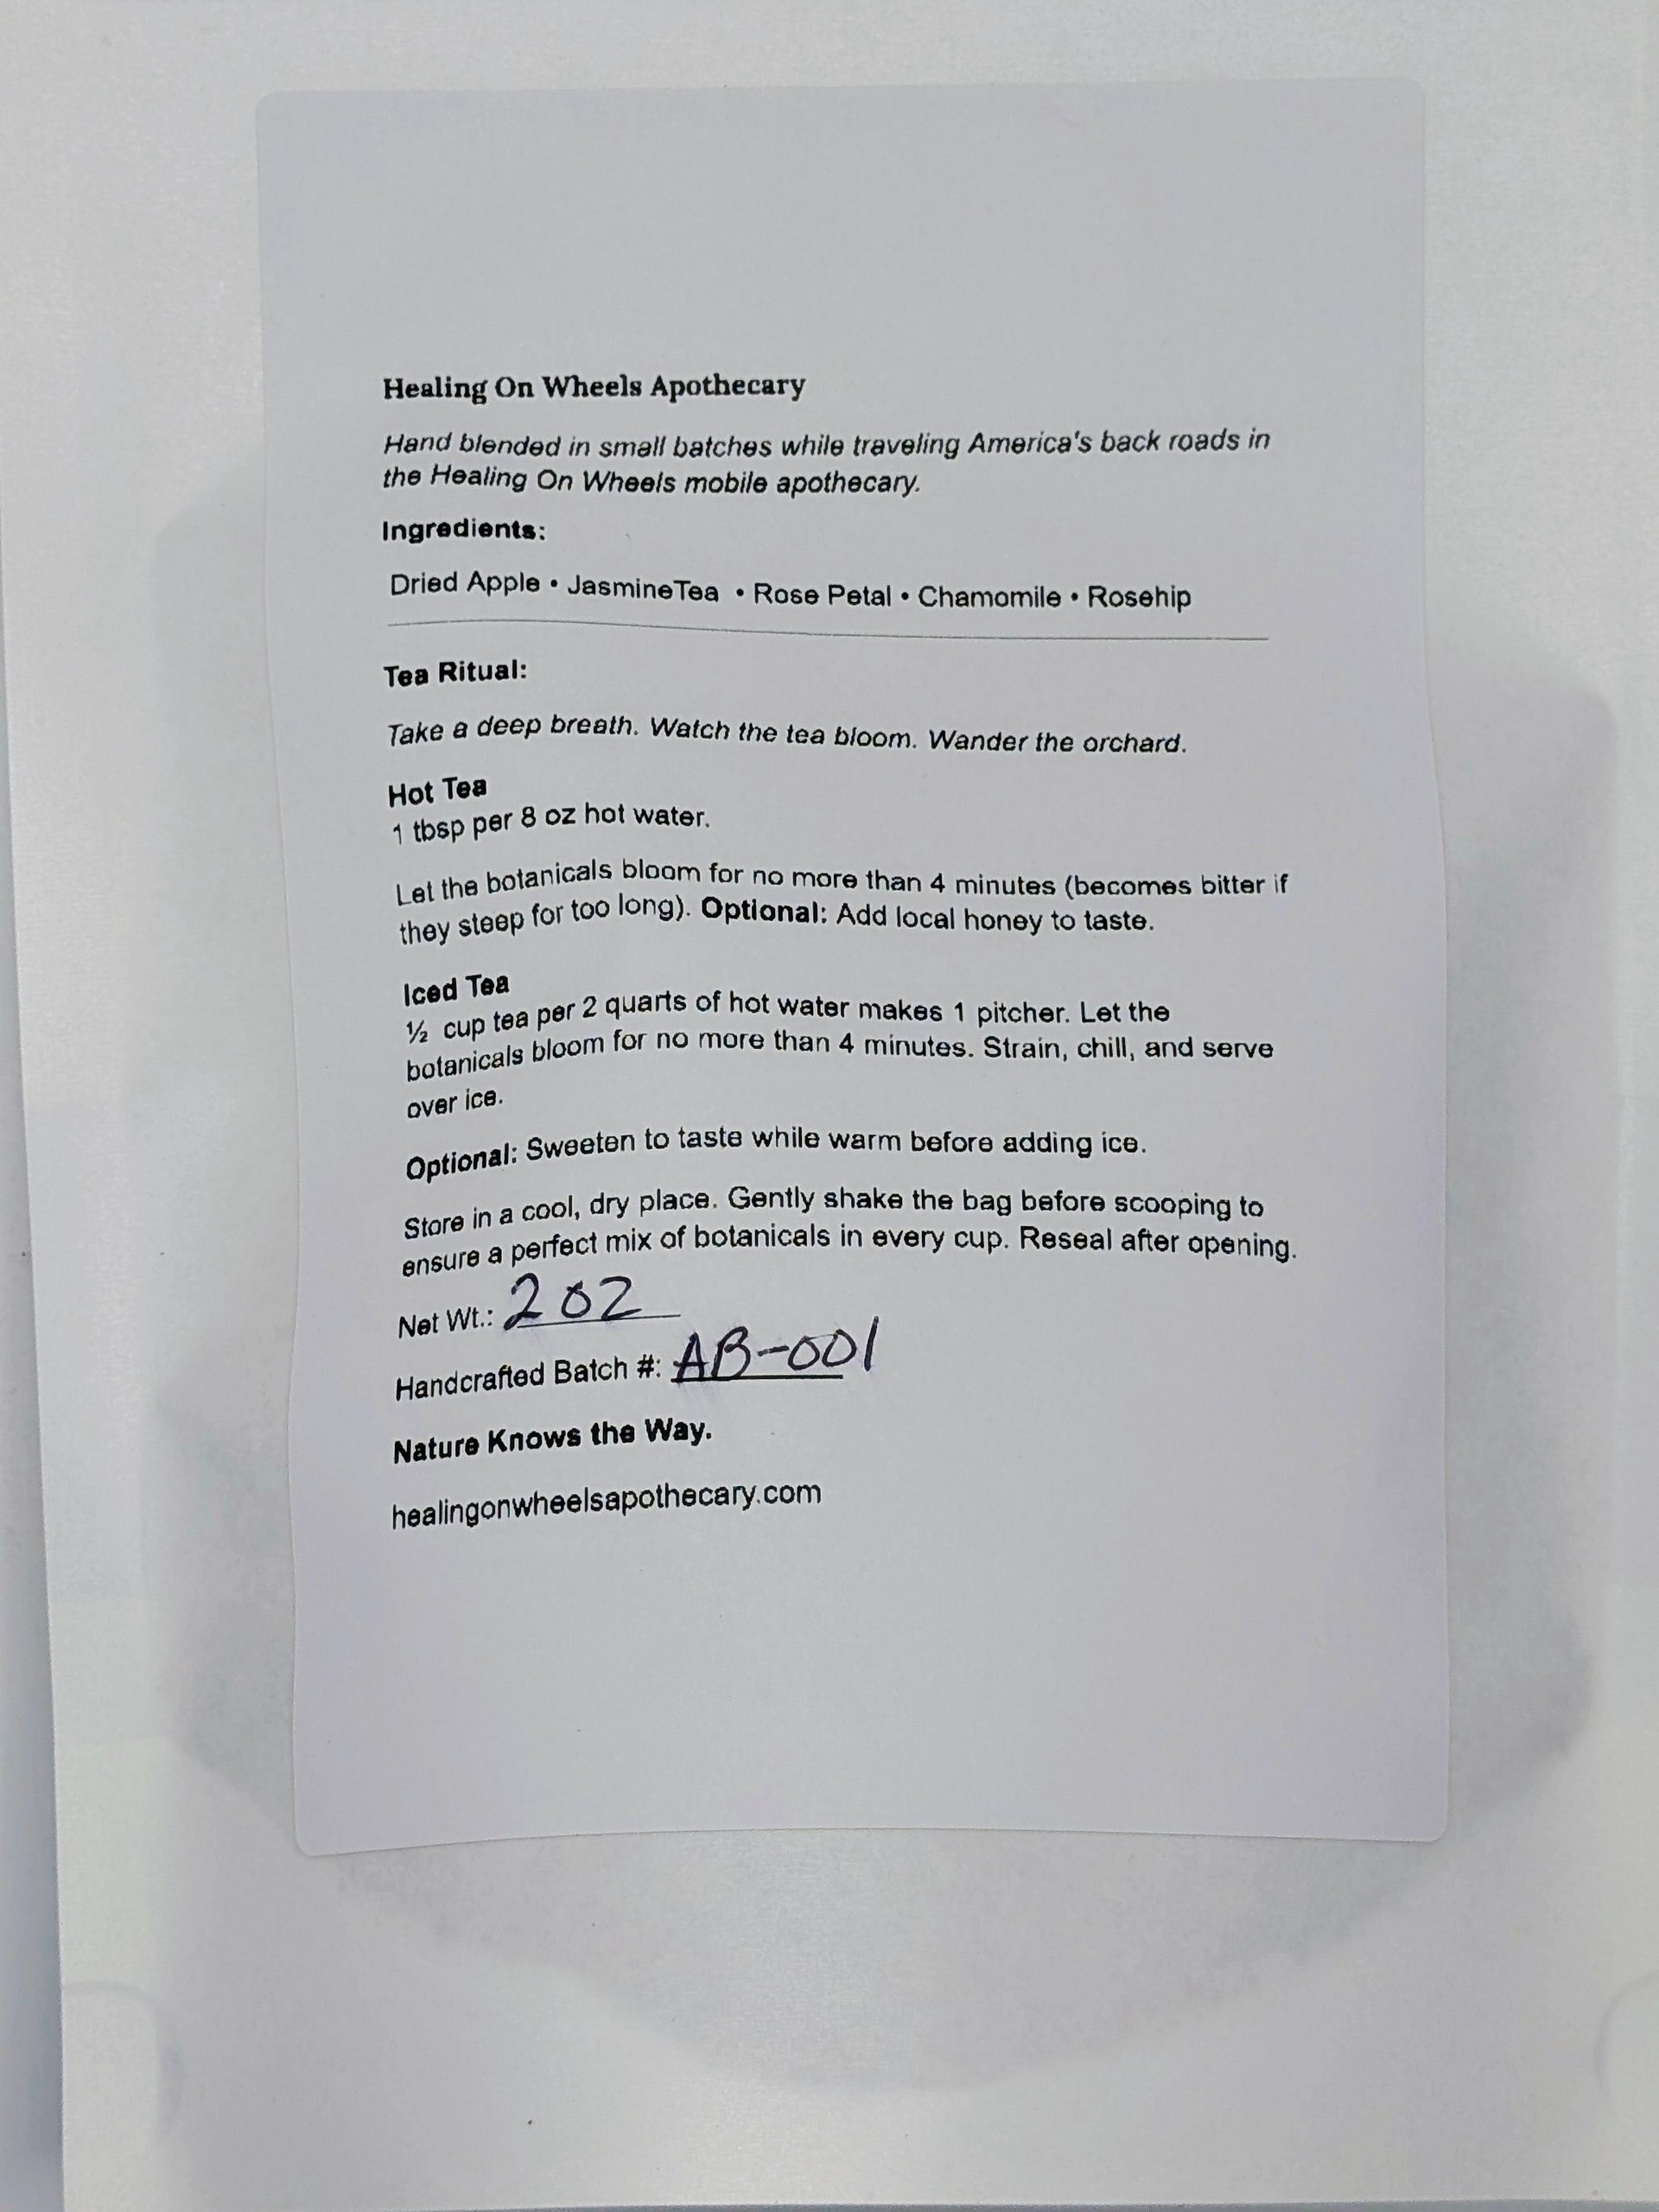 Healing On Wheels Apothecary
Hand blended in small batches while traveling America's back roads in
the Healing On Wheels mobile apothecary.
Ingredients:
Dried Apple • JasmineTea • Rose Petal • Chamomile • Rosehip
Tea Ritual:
Take a deep breath. Watch the tea bloom. Wander the orchard.
Hot Tea
1 tbsp per 8 oz hot water.
Let the botanicals bloom for no more than 4 minutes (becomes bitter if
they steep for too long). Optional: Add local honey to taste.
Iced Tea
½ cup tea per 2 quarts of hot water makes 1 pitcher. Let the
botanicals bloom for no more than 4 minutes. Strain, chill, and serve
over ice.
Optional: Sweeten to taste while warm before adding ice.
Store in a cool, dry place. Gently shake the bag before scooping to
ensure a perfect mix of botanicals in every cup. Reseal after opening.
Net Wt.: 2 oz
Handcrafted Batch #: AB-001
Nature Knows the Way.
healingonwheelsapothecary.com